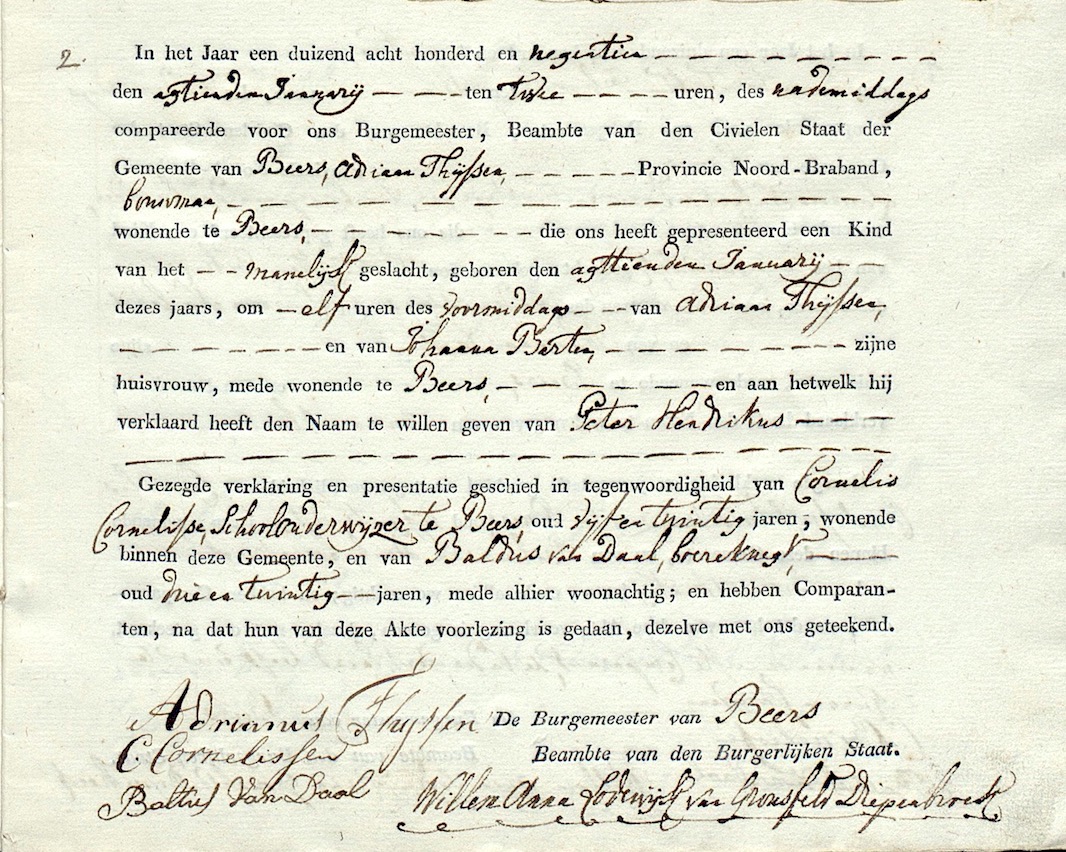 2. In het Jaar een duizend acht honderd en negentien
den agttienden Januarij ten twee uren, des nademiddags
compareerde voor ons Burgemeester, Beambte van den Civielen Staat der
Gemeente van Beers, Adriaan Thijssen, Provincie Noord-Braband,
bouwman,
wonende te Beers, die ons heeft gepresenteerd een Kind
van het manelijk geslacht, geboren den agttienden Januarij
dezes jaars, om elf uren des voormiddags van Adriaan Thijssen,
en van Johanna Barten, zijne
huisvrouw, mede wonende te Beers, en aan hetwelk hij
verklaard heeft den Naam te willen geven van Peter Hendrikus
Gezegde verklaring en presentatie geschied in tegenwoordigheid van Cornelis
Cornelisse, Schoolonderwijzer te Beers, oud vijf en twintig jaren, wonende
binnen deze Gemeente, en van Baldus van Daal, boereknegt,
oud drie en twintig jaren, mede alhier woonachtig; en hebben Comparan-
ten, na dat hun van deze Akte voorlezing is gedaan, dezelve met ons geteekend.
Adrianus Thyssen De Burgemeester van Beers
C. Cornelissen Beambte van den Burgerlijken Staat.
Baltus Van Daal Willem Anna Lodewijk van Gronsfeld Diepenbroek